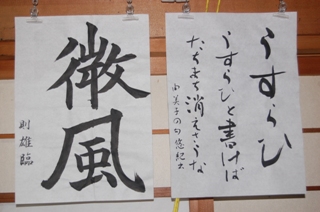 微風
則雄臨
うすらひ
うすらひと書けば
たちまち消えさうな
由美子の句 悠紀出